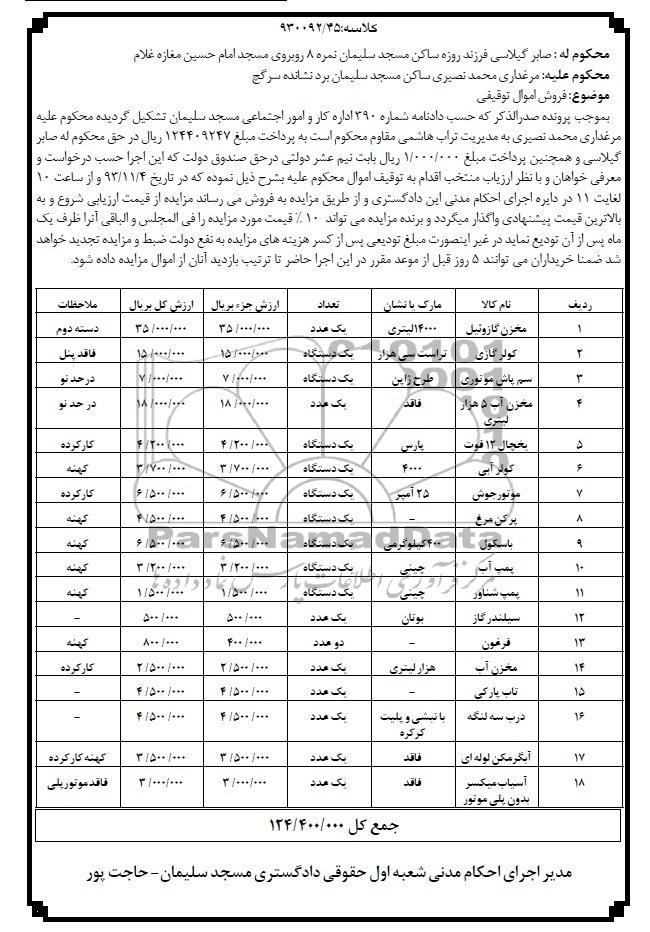 کلاسه:۹۳۰۰۹۲/۴۵
محکوم له : صابر گیلاسی فرزند روزه ساکن مسجد سلیمان نمره ۸ روبروی مسجد امام حسین مغازه غلام
محکوم علیه: مرغداری محمد نصیری ساکن مسجد سلیمان برد نشانده سرگچ
موضوع: فروش اموال توقیفی
بموجب پرونده صدرالذکر که حسب دادنامه شماره ۳۹۰ اداره کار و امور اجتماعی مسجد سلیمان تشکیل گردیده محکوم علیه
مرغداری محمد نصیری به مدیریت تراب هاشمی مقاوم محکوم است به پرداخت مبلغ ۱۲۴۴۰۹۲۴۷ ریال در حق محکوم له صابر
گیلاسی و همچنین پرداخت مبلغ ۱/۰۰۰/۰۰۰ ریال بابت نیم عشر دولتی درحق صندوق دولت که این اجرا حسب درخواست و
معرفی خواهان و با نظر ارزیاب منتخب اقدام به توقیف اموال محکوم علیه بشرح ذیل نموده که در تاریخ ۹۳/۱۱/۴ و از ساعت ۱۰
لغایت ۱۱ در دایره اجرای احکام مدنی این دادگستری و از طریق مزایده به فروش می رساند مزایده از قیمت ارزیابی شروع و به
بالاترین قیمت پیشنهادی واگذار میگردد و برنده مزایده می تواند ۱۰ ٪ قیمت مورد مزایده را فی المجلس و الباقی آنرا ظرف یک
ماه پس از آن تودیع نماید در غیر اینصورت مبلغ تودیعی پس از کسر هزینه های مزایده به نفع دولت ضبط و مزایده تجدید خواهد
شد ضمنا خریداران می توانند ۵ روز قبل از موعد مقرر در این اجرا حاضر تا ترتیب بازدید آنان از اموال مزایده داده شود.
ردیف نام کالا مارک یا نشان تعداد ارزش جزء بریال ارزش کل بریال ملاحظات
۱ مخزن گازوئیل ۱۴۰۰۰لیتری یک عدد ۳۵/۰۰۰/۰۰۰ ۳۵/۰۰۰/۰۰۰ دسته دوم
۲ کولر گازی تراست سی هزار یک دستگاه ۱۵/۰۰۰/۰۰۰ ۱۵/۰۰۰/۰۰۰ فاقد پنل
۳ سم پاش موتوری طرح ژاپن یک دستگاه ۷/۰۰۰/۰۰۰ ۷/۰۰۰/۰۰۰ درحد نو
۴ مخزن آب ۵ هزار فاقد یک عدد ۱۸/۰۰۰/۰۰۰ ۱۸/۰۰۰/۰۰۰ در حد نو
لیتری
۵ یخچال ۱۲ فوت پارس یک دستگاه ۴/۲۰۰/۰۰۰ ۴/۲۰۰/۰۰۰ کارکرده
۶ کولر آبی ۴۰۰۰ یک دستگاه ۳/۷۰۰/۰۰۰ ۳/۷۰۰/۰۰۰ کهنه
۷ موتورجوش ۲۵ آمپر یک دستگاه ۶/۵۰۰/۰۰۰ ۶/۵۰۰/۰۰۰ کارکرده
۸ پرکن مرغ - یک دستگاه ۴/۵۰۰/۰۰۰ ۴/۵۰۰/۰۰۰ کهنه
۹ باسکول ۴۰۰کیلوگرمی یک دستگاه ۶/۵۰۰/۰۰۰ ۶/۵۰۰/۰۰۰ کهنه
۱۰ پمپ آب چینی یک دستگاه ۳/۲۰۰/۰۰۰ ۳/۲۰۰/۰۰۰ کهنه
۱۱ پمپ شناور چینی یک دستگاه ۱/۵۰۰/۰۰۰ ۱/۵۰۰/۰۰۰ کهنه
۱۲ سیلندر گاز بوتان یک عدد ۵۰۰/۰۰۰ ۵۰۰/۰۰۰ -
۱۳ فرغون - دو عدد ۴۰۰/۰۰۰ ۸۰۰/۰۰۰ کهنه
۱۴ مخزن آب هزار لیتری یک عدد ۲/۵۰۰/۰۰۰ ۲/۵۰۰/۰۰۰ کارکرده
۱۵ تاب پارکی - یک عدد ۴/۵۰۰/۰۰۰ ۴/۵۰۰/۰۰۰ -
۱۶ درب سه لنگه با نبشی و پلیت یک عدد ۴/۵۰۰/۰۰۰ ۴/۵۰۰/۰۰۰ -
کرکره
۱۷ آبگرمکن لوله ای فاقد یک عدد ۳/۵۰۰/۰۰۰ ۳/۵۰۰/۰۰۰ کهنه کارکرده
۱۸ آسیاب میکسر فاقد یک عدد ۳/۰۰۰/۰۰۰ ۳/۰۰۰/۰۰۰ فاقد موتور پلی
بدون پلی موتور
جمع کل ۱۲۴/۴۰۰/۰۰۰
مدیر اجرای احکام مدنی شعبه اول حقوقی دادگستری مسجد سلیمان - حاجت پور
ParsNamadData
مرکز فرآوری اطلاعات پارس نماد داده ها